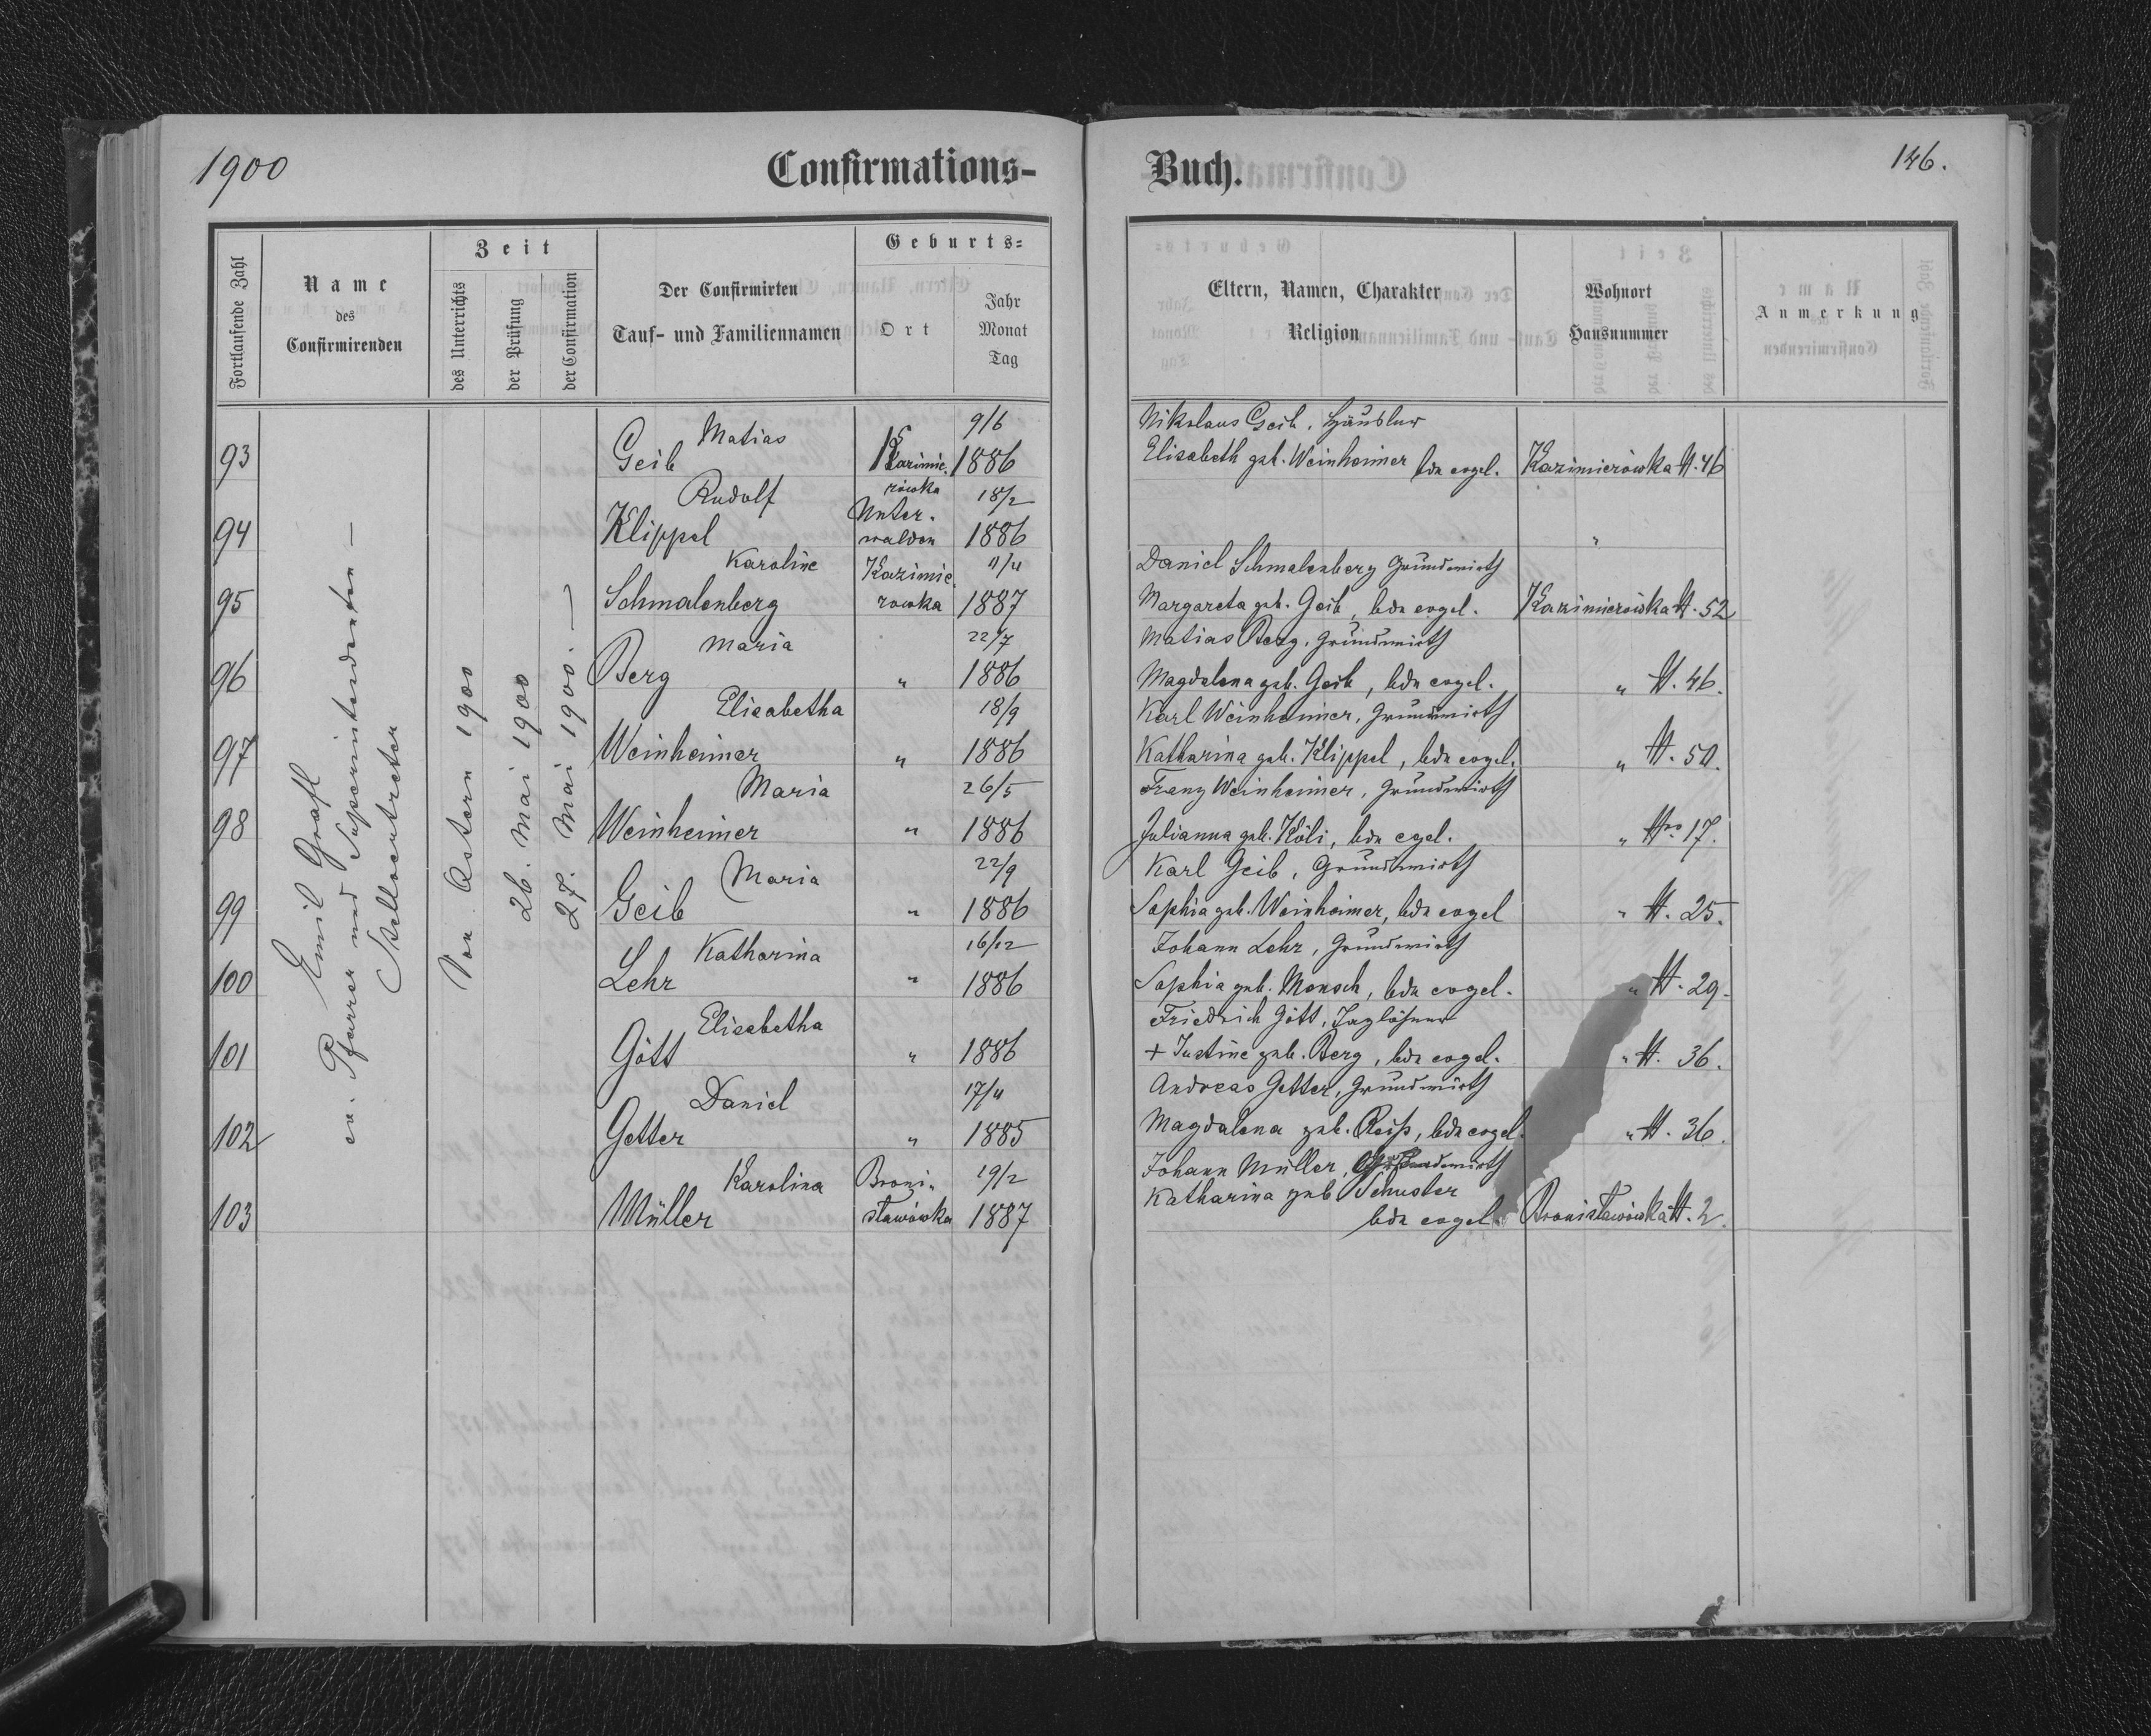 1900
Confirmations-
Buch.
146.
Fortlaufende Zahl
Name
des
Confirmirenden
Zeit
des Unterrichts
der Prüfung
der Confirmation
Der Confirmirten
Tauf- und Familiennamen
Geburts=
Ort
Jahr
Monat
Tag
Eltern, Namen, Charakter
Religion
Wohnort
Hausnummer
Anmerkung
Emil Grafl
ev. Pfarrer und Superintendenten-
Stellvertreter
Von Ostern 1900
26. Mai 1900
27. Mai 1900. —
Matias 9/6 Nikolaus Geib, Häusler
93 Geib Kazimie. 1886 Elisabeth geb. Weinheimer bde evgel. Kazimierówka N. 46
rówka
Rudolf Unter- 18/2
94 Klippel walden 1886 "
Karoline Kazimie. 11/4 Daniel Schmalenberg Grundwirth
95 Schmalenberg rowka 1887 Margareta geb. Geib, bde evgel. Kazimierówka N. 52
Maria 22/7 Matias Berg, Grundwirth
96 Berg " 1886 Magdalena geb. Geib, bde evgel. " N. 46.
Elisabetha 18/9 Karl Weinheimer, Grundwirth
97 Weinheimer " 1886 Katharina geb. Klippel, bde evgel. " N. 50.
Maria 26/5 Franz Weinheimer, Grundwirth
98 Weinheimer " 1886 Julianna geb. Köli, bde egel. " Nro 17.
Maria 22/9 Karl Geib, Grundwirth
99 Geib " 1886 Sophia geb. Weinheimer, bde evgel " N. 25.
Katharina 16/12 Johann Lehr, Grundwirth
100 Lehr " 1886 Sophia geb. Monsch, bde evgel. " N. 29.
Elisabetha Friedrich Gött, Taglöhner
101 Gött " 1886 + Justine geb. Berg, bde evgel. " N. 36.
Daniel 17/4 Andreas Getter, Grundwirth
102 Getter " 1885 Magdalena geb. Reiß, bde evgel. " N. 36.
Karolina Broni- 19/2 Johann Müller, Grundwirth
103 Müller sławówka 1887 Katharina geb Schuster
bde evgel. Bronisławówka N. 2.